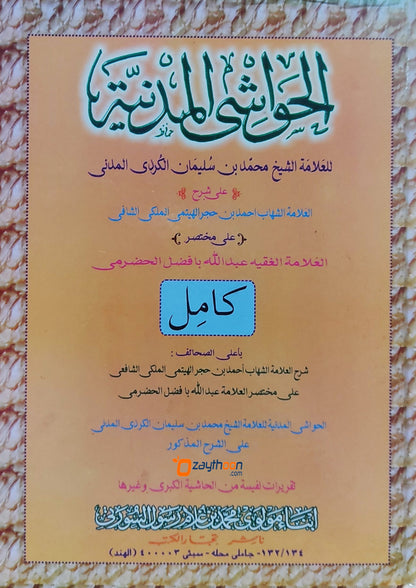 الحواشي المدنية
للعلامة الشيخ محمد بن سليمان الكردي المدني
على شرح
العلامة الشهاب احمد بن حجر الهيتمي الملكي الشافي
على مختصر
العلامة الفقيه عبد الله بافضل الحضرمي
كامل
بأعلى الصحائف :
شرح العلامة الشهاب أحمد بن حجر الهيتمي الملكي الشافعي
على مختصر العلامة عبد الله بافضل الحضرمي
الحواشي المدنية للعلامة الشيخ محمد بن سليمان الكردي المدني
على الشرح المذكور
zaythoon
.com
تقريرات نفيسة من الحاشية الكبرى وغيرها
ابناء مولوي محمد بن غلام رسول السورتي
١٣٢/١٣٤- جاملي محله - سبئي ٤٠٠٠٠٣ (الهند)